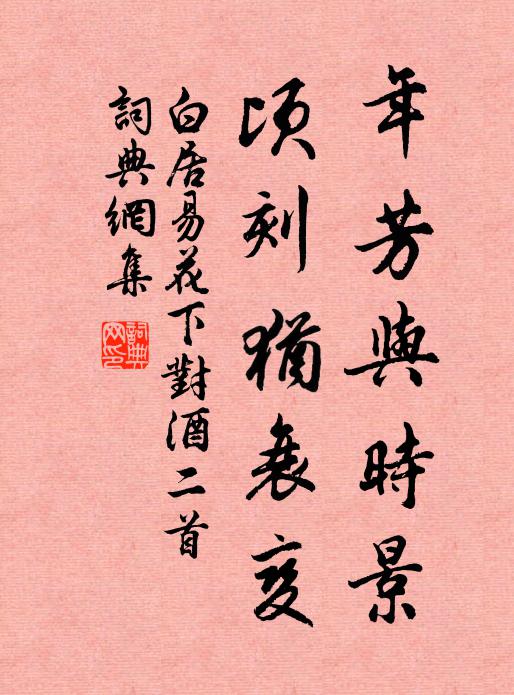 年芳與時景
頃刻猶衰變
白居易花下對酒二首
詞典網集
詞典网印